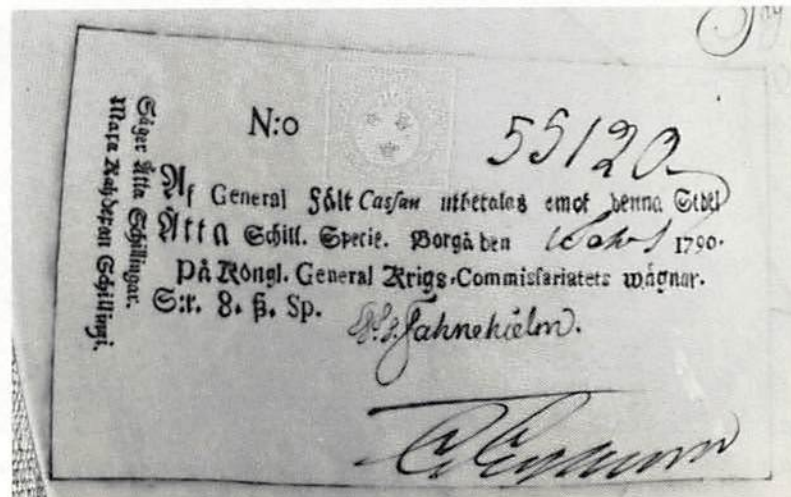 Säger Åtta Schillingar.
Maxa Kahdexan Schillingi.
N:o 55120
Af General Fält Cassan utbetales emot denna Sedel
Åtta Schill. Specie. Borgå den 1790.
På Kongl. General Krigs-Commissariatets wägnar.
S:r. 8. ß. Sp.
Fahnehielm.